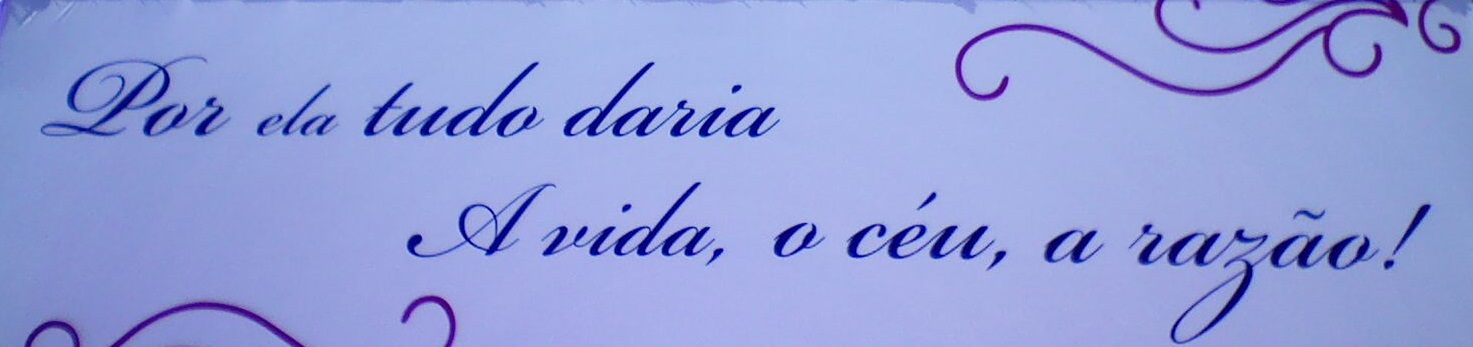 Por ela tudo daria
A vida, o céu, a razão!